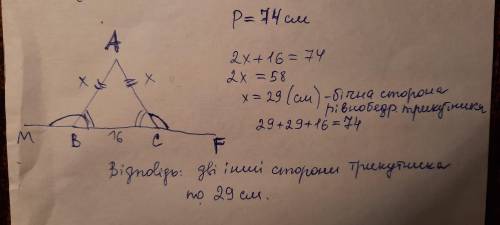 P = 74 см
A
2x + 16 = 74
x x
2x = 58
x = 29 (см) - бічна сторона
рівнобедр. трикутника
M B 16 C F
29 + 29 + 16 = 74
Відповідь: дві інші сторони трикутника
по 29 см.